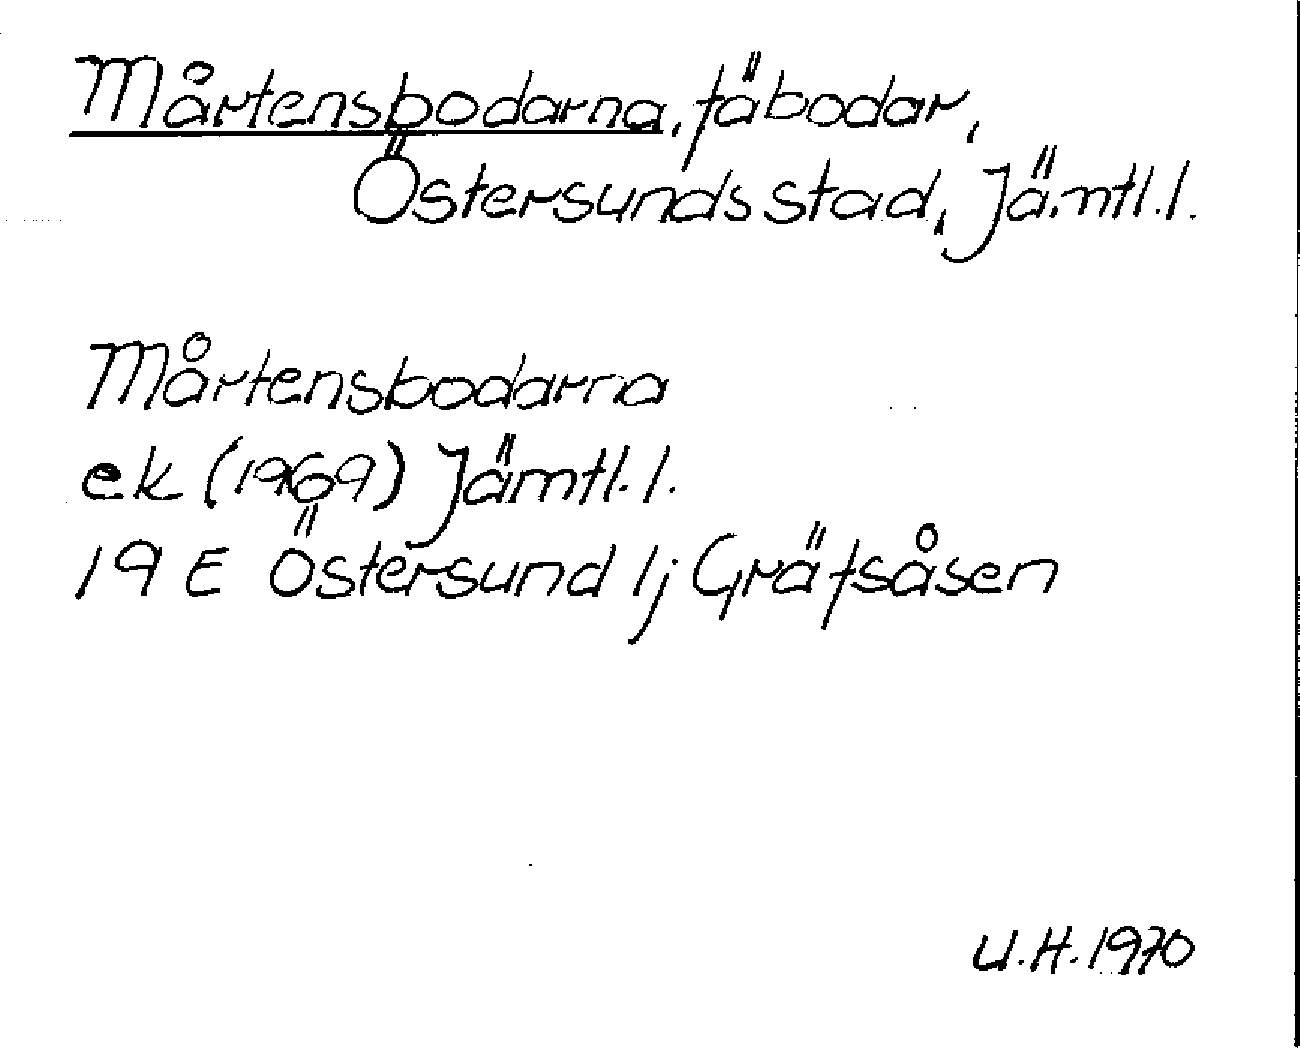 Mårtensbodarna, fäbodar,
Östersunds stad, Jämtl.l.
Mårtensbodarna
ek (1969) Jämtl.l.
19 E Östersund 1j Gräfsåsen
U.H. 1970